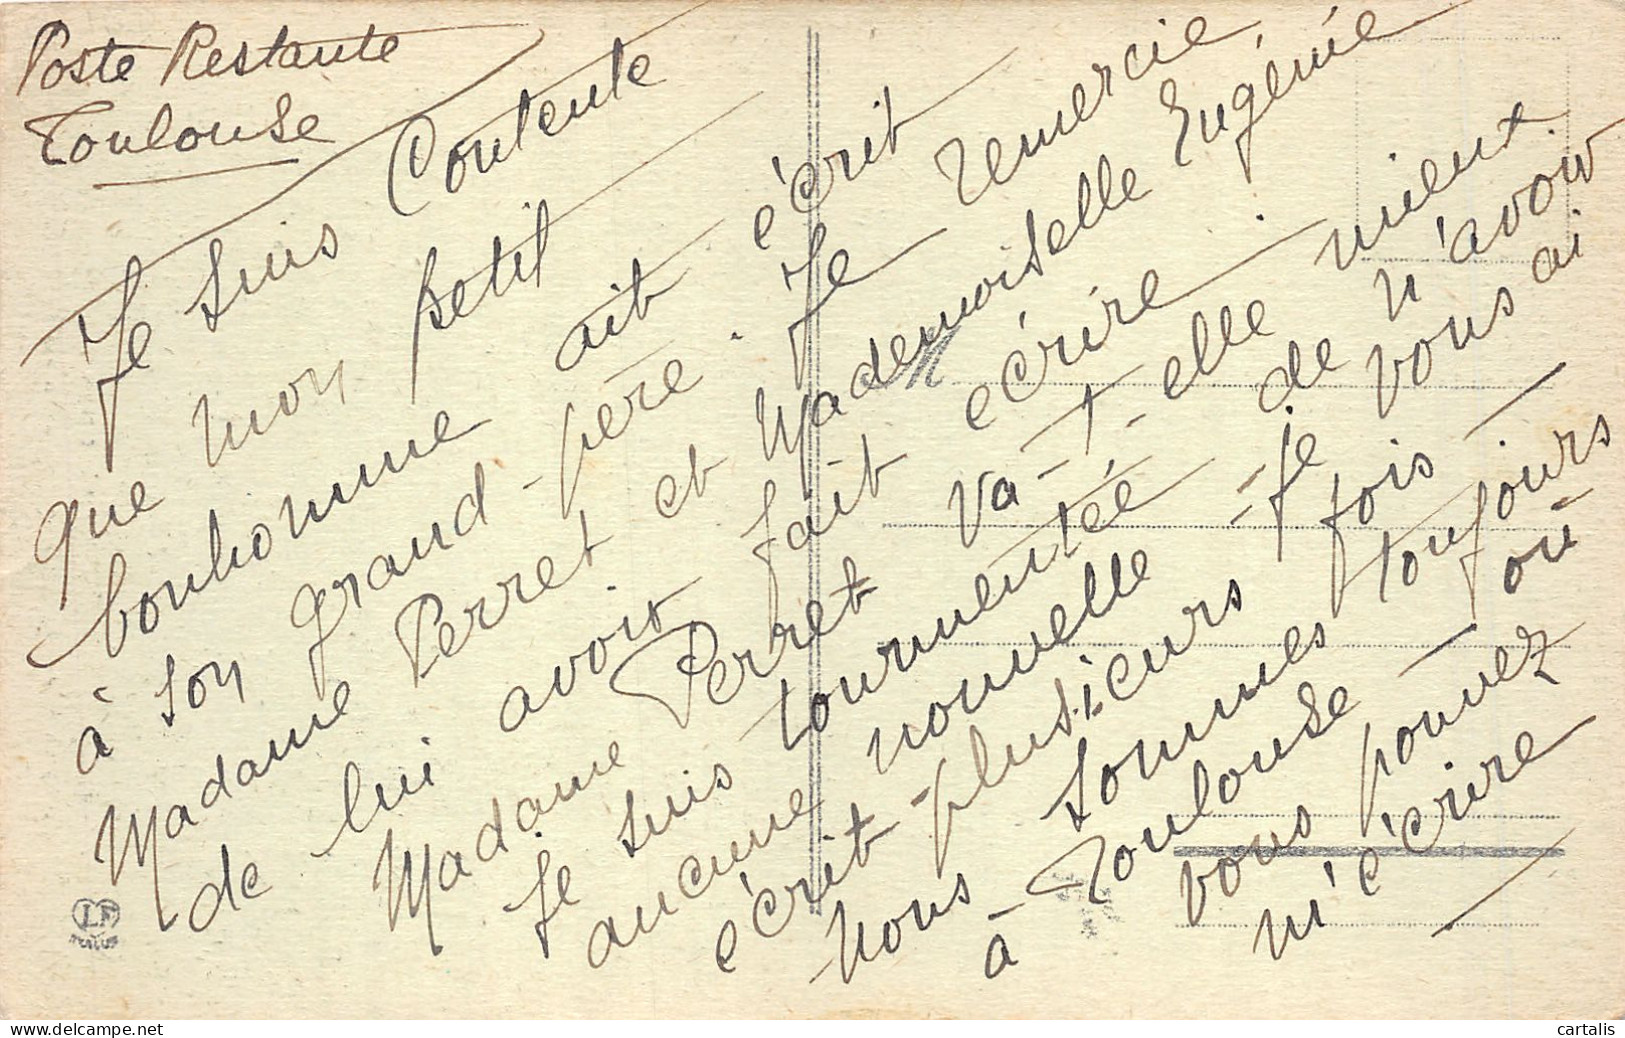 Poste Restante
Toulouse
Je suis Contente
que mon petit
bonhomme ait écrit
à son grand-père. Je remercie
Madame Perret et Mademoiselle Eugénie
de lui avoir fait écrire.
Madame Perret va-t-elle mieux
Je suis tourmentée de n'avoir
aucune nouvelle - Je vous ai
écrit plusieurs fois -
Nous sommes toujours
à Toulouse - où
vous pouvez
m'écrire
LF
cartalis
delcampe.net